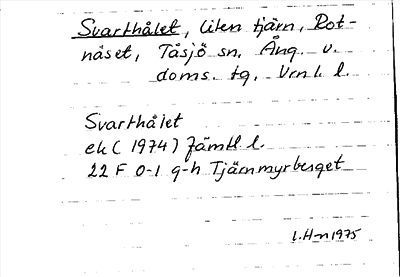 Svarthålet, liten tjärn, Rot-
näset, Tåsjö sn. Ång. v.
doms. tg. Vrnl. l.
Svarthålet
ek (1974) Jämtl l.
22 F 0-1 g-h Tjärnmyrberget
l.Hn 1975